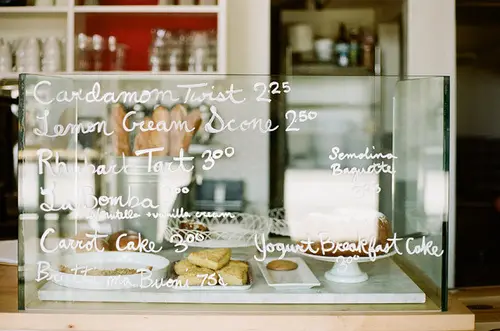 Cardamom Twist 2.25
Lemon Cream Scone 2.50
Rhubarb Tart 3.00
La Bomba
+ vanilla cream
Carrot Cake 3.00
75¢
Semolina
Baguette
Yogurt Breakfast Cake
3.00